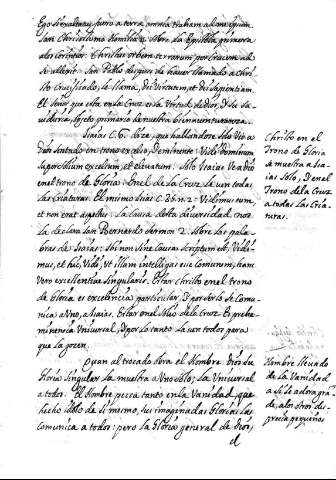 Ego si exaltatus fuero a terra omnia traham ad me ipsum
San Chrisostomo Homilia 2. sobre la Epistola primera
a los Corinthios: Christus orbem terrarum per Crucem ad
se allexit: San Pablo despues de haver llamado a Chri-
sto Crucificado, le llama, Dei Virtutem, et Dei sapientiam.
El señor que esta en la Cruz es la Virtud de Dios, y su Sa-
viduria, sujeto primario de nuestra Bienaventuranza.
Isaias C. 6. dize, que hallandose solo Vio a
Dios sentado en trono excelso, y eminente: Vidi Dominum
super solium excelsum, et elevatum: solo Isaias Ve a Dios
en el trono de Gloria: En el de la Cruz le ven todas
las Criaturas. El mismo Isaias C. 53. n. 2: Vidimus eum,
et non erat aspectus: La causa desta diversidad
la declara san Bernardo sermon 2. sobre las pala-
bras de Isaias: Ibi non sine causa scriptum est, Vidi-
mus, et hic, Vidi, ut illam intelligas esse comunem, hanc
vero excellentiæ singularis. Estar Christo en el trono
de Gloria, es excelencia particular, y por esto se comu-
nica a Uno, a Isaias. Estar en el Solio de la Cruz es prehe-
minencia Universal, y por lo tanto la ven todos para
que la gozen.
Quan al trocado obra el Hombre. Dios su
Gloria singular la muestra a Uno solo; la Universal
a todos. El Hombre pecca tanto en la Vanidad, que
hecho idolo de si mismo, sus imaginadas Glorias las
comunica a todos: pero la Gloria general de Dios,
el
Christo en el
Trono de Gloria
se muestra a Isa-
ias solo, y en el
Trono de la Cruz
a todas las Cria-
turas.
Hombre llevado
de la Vanidad
a si se adora gran-
de, a los otros des-
precia pequeños